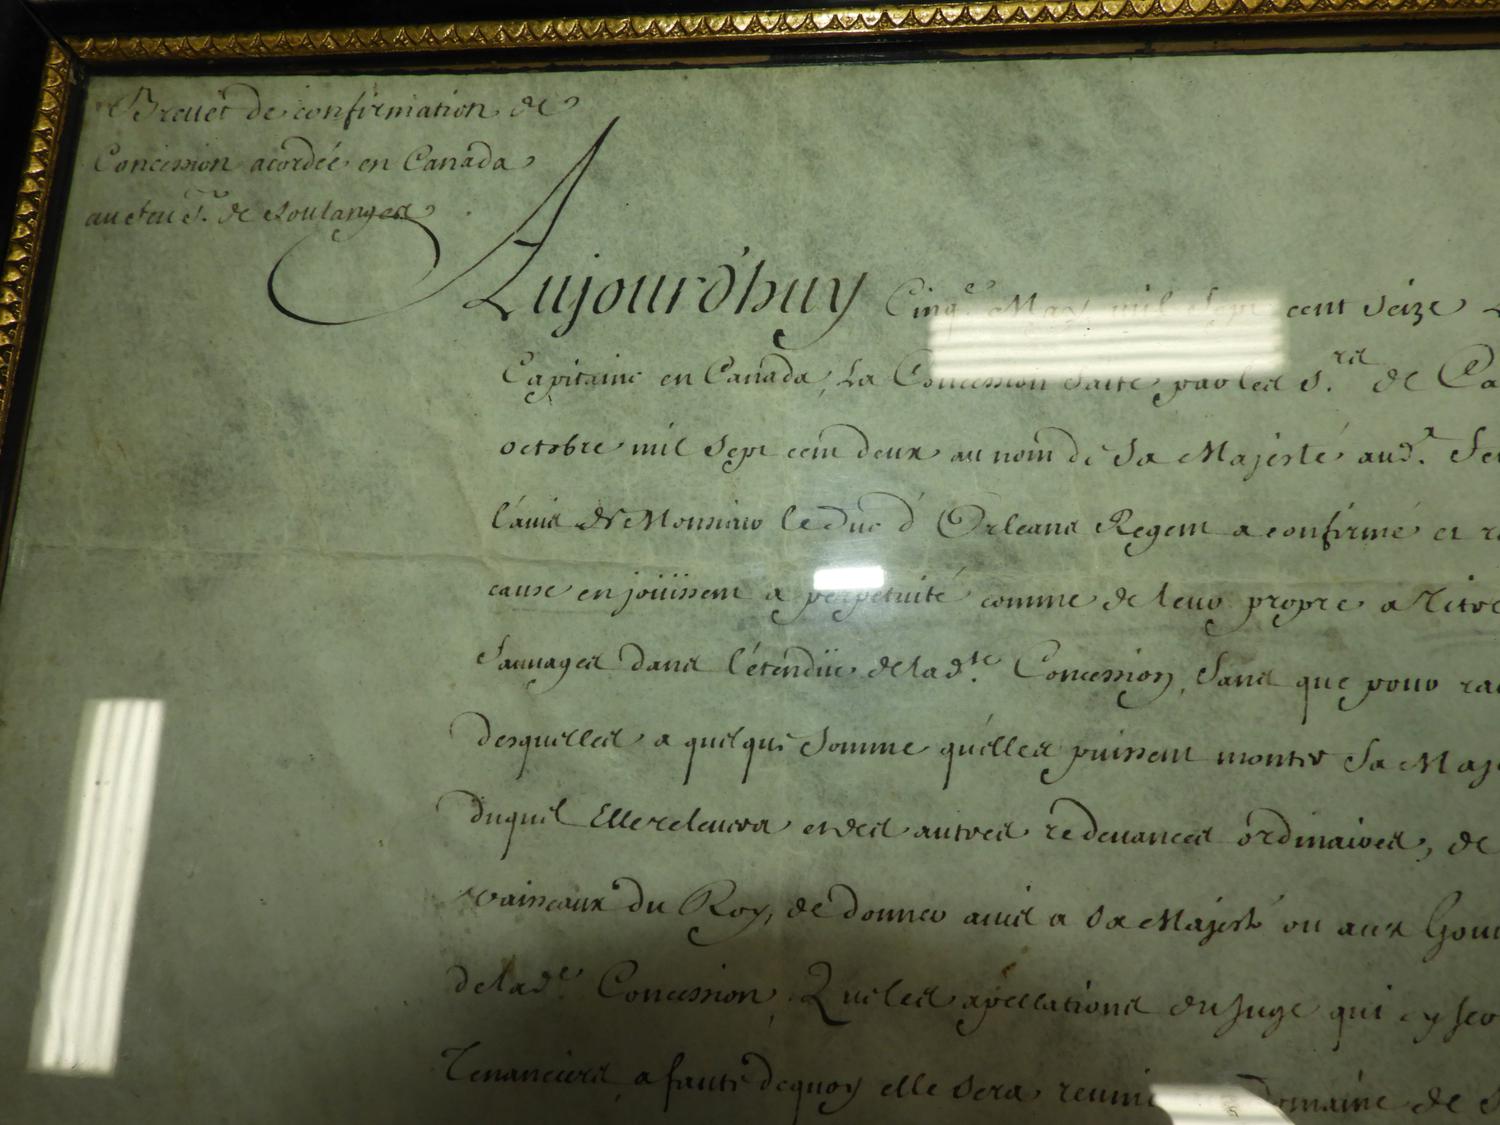 Brevet de confirmation de
Concession acordée en Canada
au feu S.r de Soulanges
Aujourd'huy Cinq.e May mil Sept cent Seize
Capitaine en Canada, La Concession faite par les S.rs de Ca
octobre mil Sept cent deux au nom de Sa Majesté aud.t
l'avis de Monsieur le Duc d'Orleans Regent a confirmé et
cause en joüissent a perpetuité comme de leur propre a Titre
Sauvages dans l'étendüe de lad.te Concession, Sans que pour
desquelles a quelque Somme qu'elles puissent monter Sa Maj
duquel Elle relevera et des autres redevances ordinaires, de
vaisseaux du Roy, de donner avis a Sa Majesté ou aux Gouv
de lad.e Concession, Que les apellations du Juge qui y
Tenanciers, a faute dequoy elle sera reunie Domaine de